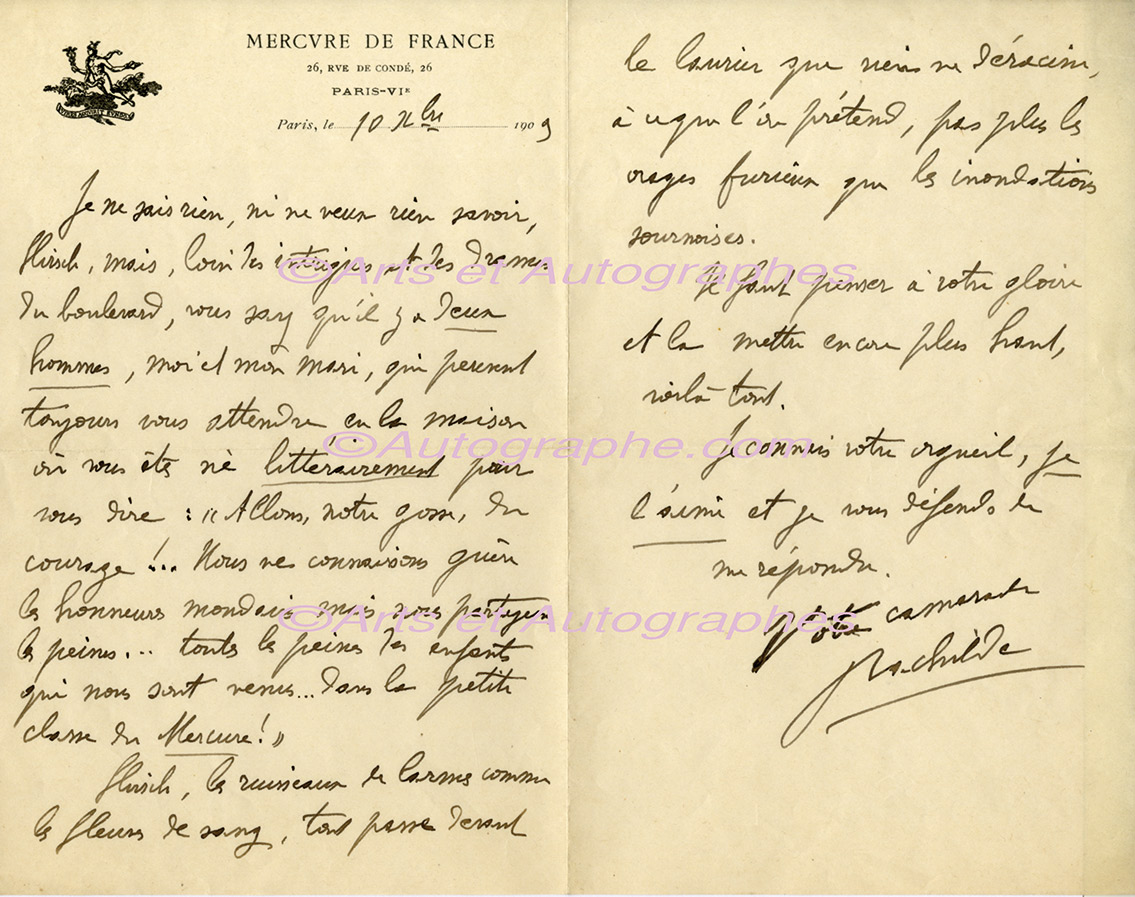 MERCVRE DE FRANCE
26, RVE DE CONDÉ, 26
PARIS-VIE
Paris, le 10 Xbre 1909
Je ne sais rien, ni ne veux rien savoir,
Hirsch, mais, loin des intrigues et des drames
du boulevard, vous savez qu'il y a deux
hommes, moi et mon mari, qui peuvent
toujours vous attendre en la maison
où vous êtes né littérairement pour
vous dire : « Allons, notre gosse, du
courage !... Nous ne connaissons guère
les honneurs mondains mais nous partageons
les peines... toutes les peines des enfants
qui nous sont venus... dans la petite
classe du Mercure! »
Hirsch, les ruisseaux de larmes comme
les fleuves de sang, tout passe devant
le laurier que rien ne déracine,
à ce que l'on prétend, pas plus les
orages furieux que les inondations
sournoises.
Il faut penser à votre gloire
et la mettre encore plus haut,
voilà tout.
Je connais votre orgueil, je
l'aime et je vous défends de
me répondre.
Votre camarade
Rachilde
©Arts et Autographes
©Autographe.com
©Arts et Autographes